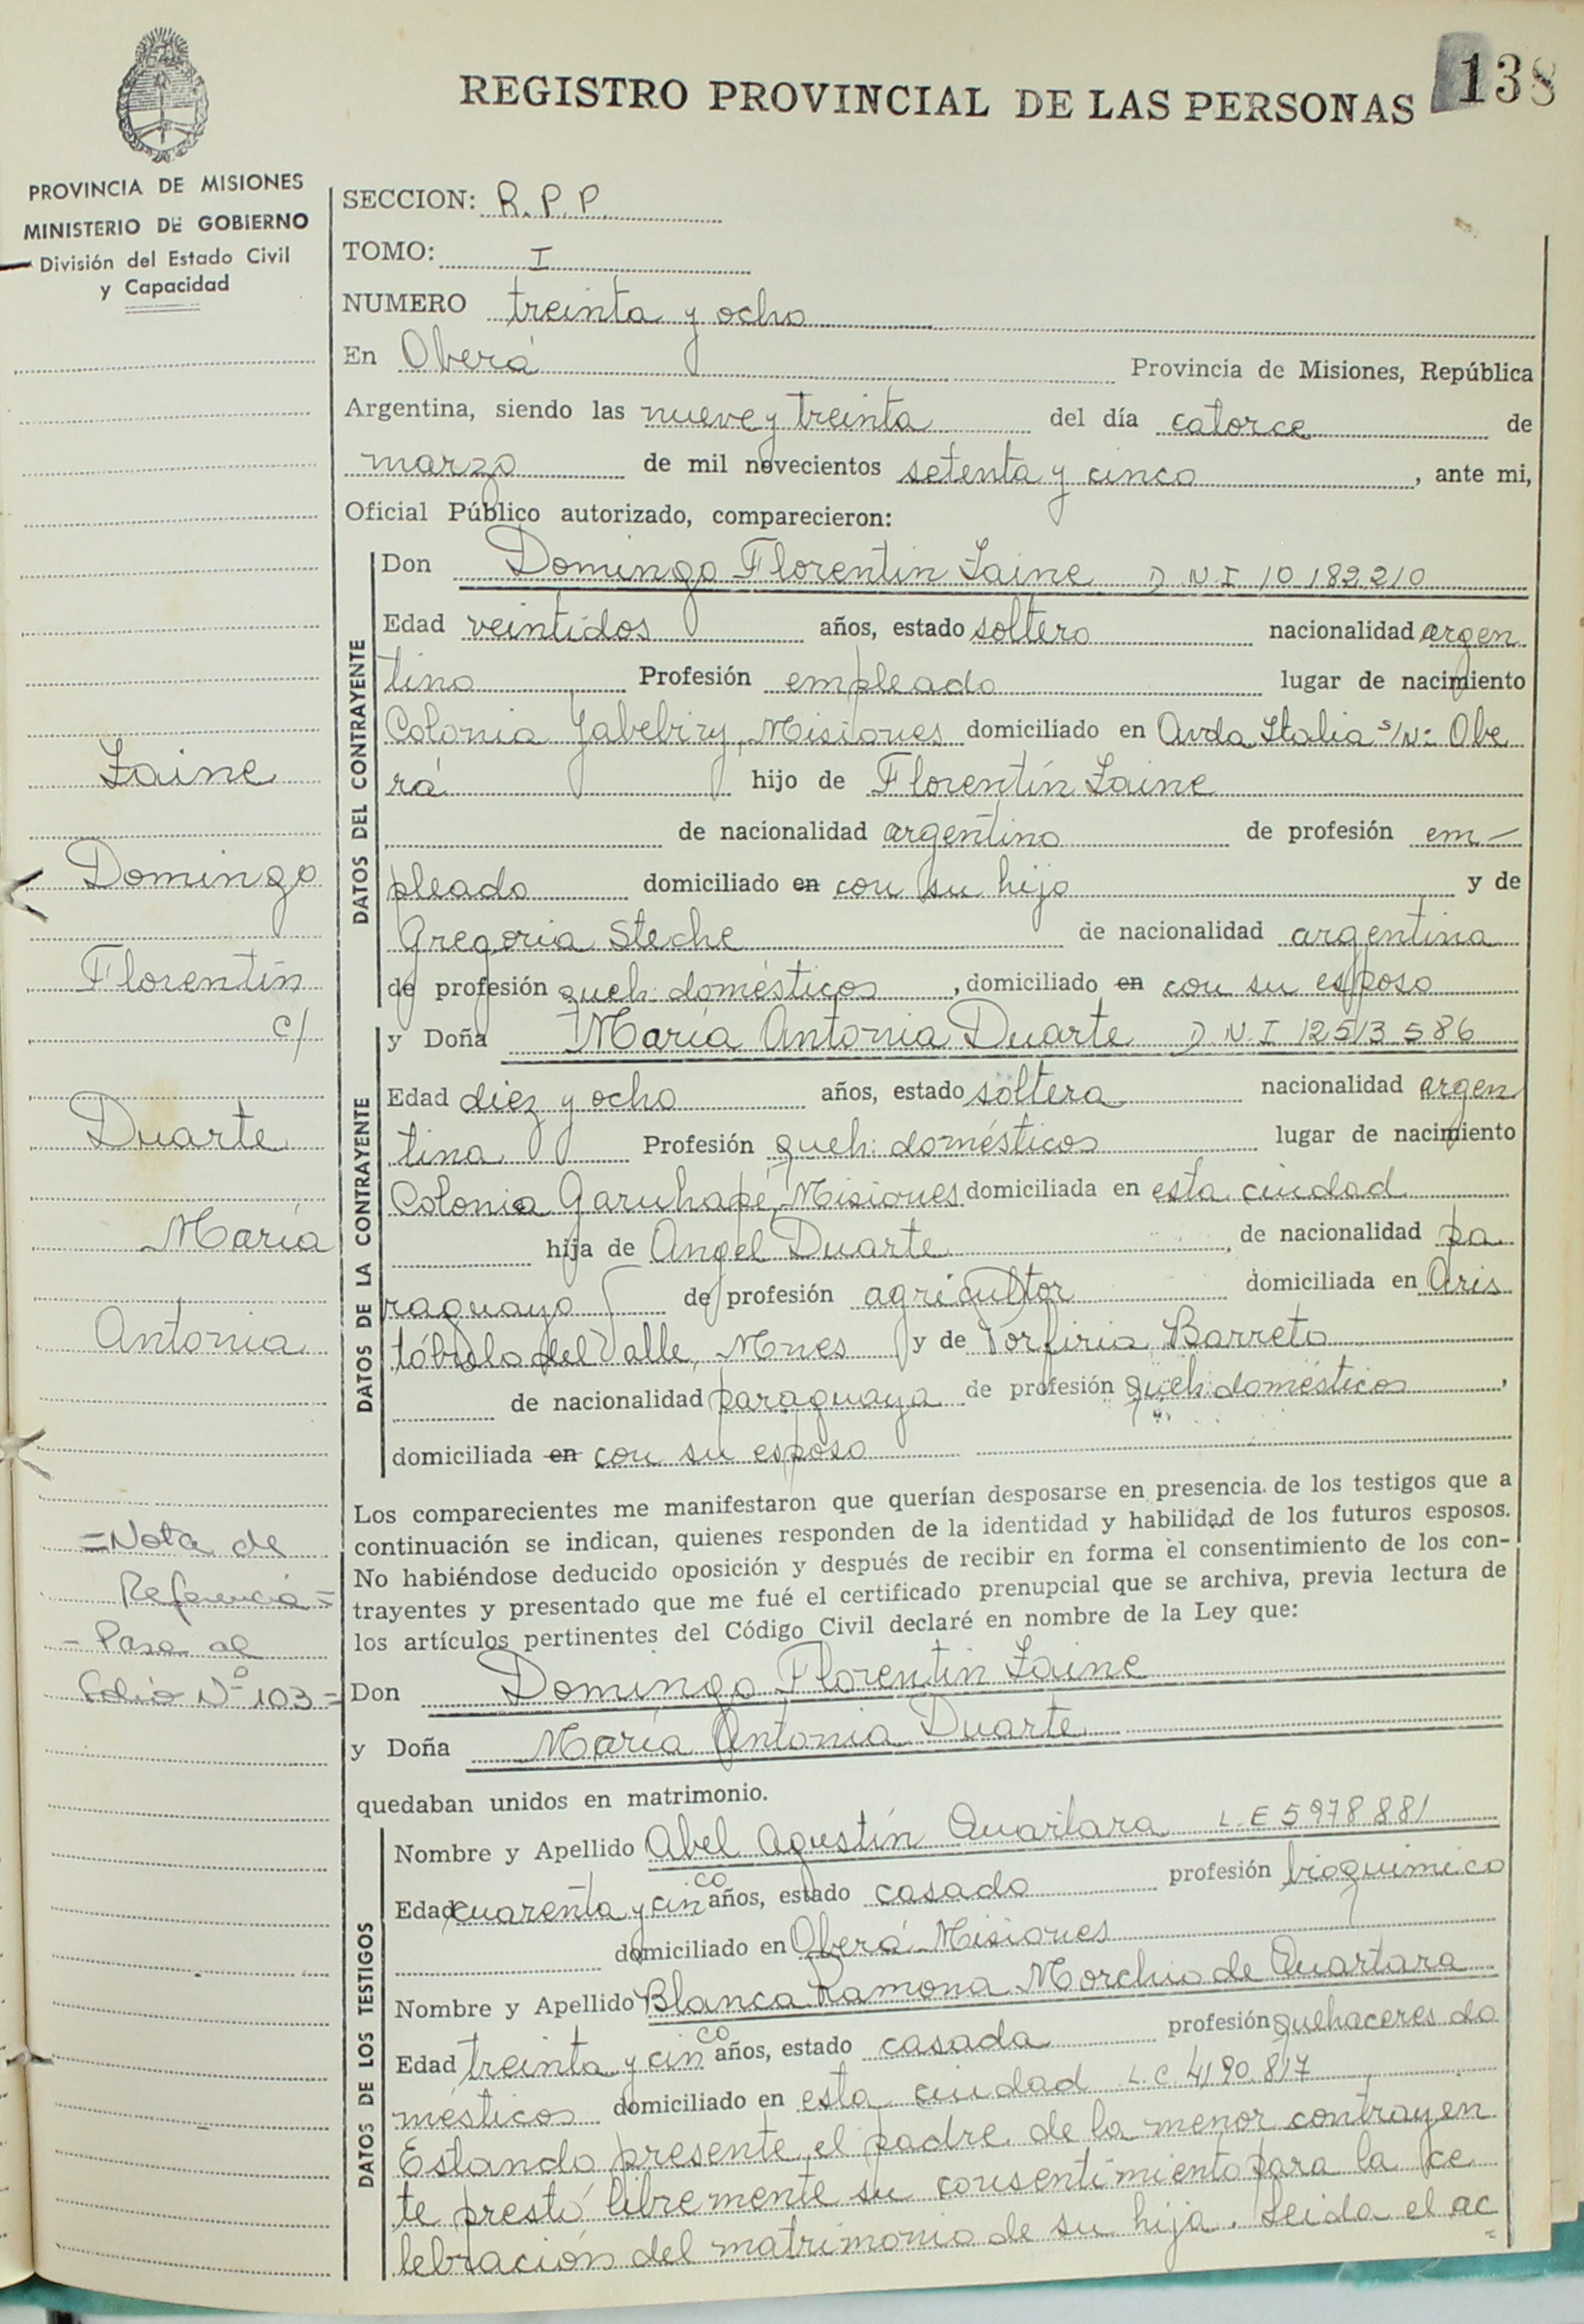 REGISTRO PROVINCIAL DE LAS PERSONAS 138
PROVINCIA DE MISIONES
MINISTERIO DE GOBIERNO
División del Estado Civil
y Capacidad
SECCION: R.P.P.
TOMO: I
NUMERO treinta y ocho
En Oberá Provincia de Misiones, República
Argentina, siendo las nueve y treinta del día catorce de
marzo de mil novecientos setenta y cinco, ante mi,
Oficial Público autorizado, comparecieron:
DATOS DEL CONTRAYENTE
Don Domingo Florentin Zaine D.N.I 10.182.210
Edad veintidos años, estado soltero nacionalidad argen
tino Profesión empleado lugar de nacimiento
Colonia Yabebiry, Misiones domiciliado en Avda. Italia s/Nº Obe
rá hijo de Florentín Zaine
de nacionalidad argentino de profesión em-
pleado domiciliado en con su hijo y de
Gregoria Steche de nacionalidad argentina
de profesión queh: domésticos, domiciliado en con su esposo
y Doña María Antonia Duarte D.N.I 12.513.586
DATOS DE LA CONTRAYENTE
Edad diez y ocho años, estado soltera nacionalidad argen
tina Profesión queh: domésticos lugar de nacimiento
Colonia Garuhapé, Misiones domiciliada en esta ciudad
hija de Angel Duarte, de nacionalidad pa
raguayo de profesión agricultor domiciliada en Aris
tóbulo del Valle, Mnes y de Porfiria Barreto
de nacionalidad paraguaya de profesión queh: domésticos,
domiciliada en con su esposo
Los comparecientes me manifestaron que querían desposarse en presencia de los testigos que a
continuación se indican, quienes responden de la identidad y habilidad de los futuros esposos.
No habiéndose deducido oposición y después de recibir en forma el consentimiento de los con-
trayentes y presentado que me fué el certificado prenupcial que se archiva, previa lectura de
los artículos pertinentes del Código Civil declaré en nombre de la Ley que:
Don Domingo Florentin Zaine
y Doña María Antonia Duarte
quedaban unidos en matrimonio.
DATOS DE LOS TESTIGOS
Nombre y Apellido Abel Agustín Quartara L.E 5978881
Edad cuarenta y cinco años, estado casado profesión bioquimico
domiciliado en Oberá Misiones
Nombre y Apellido Blanca Ramona Morchio de Quartara
Edad treinta y cinco años, estado casada profesión quehaceres do
mésticos domiciliado en esta ciudad L.C. 4190.817
Estando presente el padre de la menor contrayen
te prestó libremente su consentimiento para la ce
lebración del matrimonio de su hija. Leida el ac
=
Zaine
Domingo
Florentín
c/
Duarte
María
Antonia
=Nota de
Referencia=
- Pasa al
folio Nº 103=